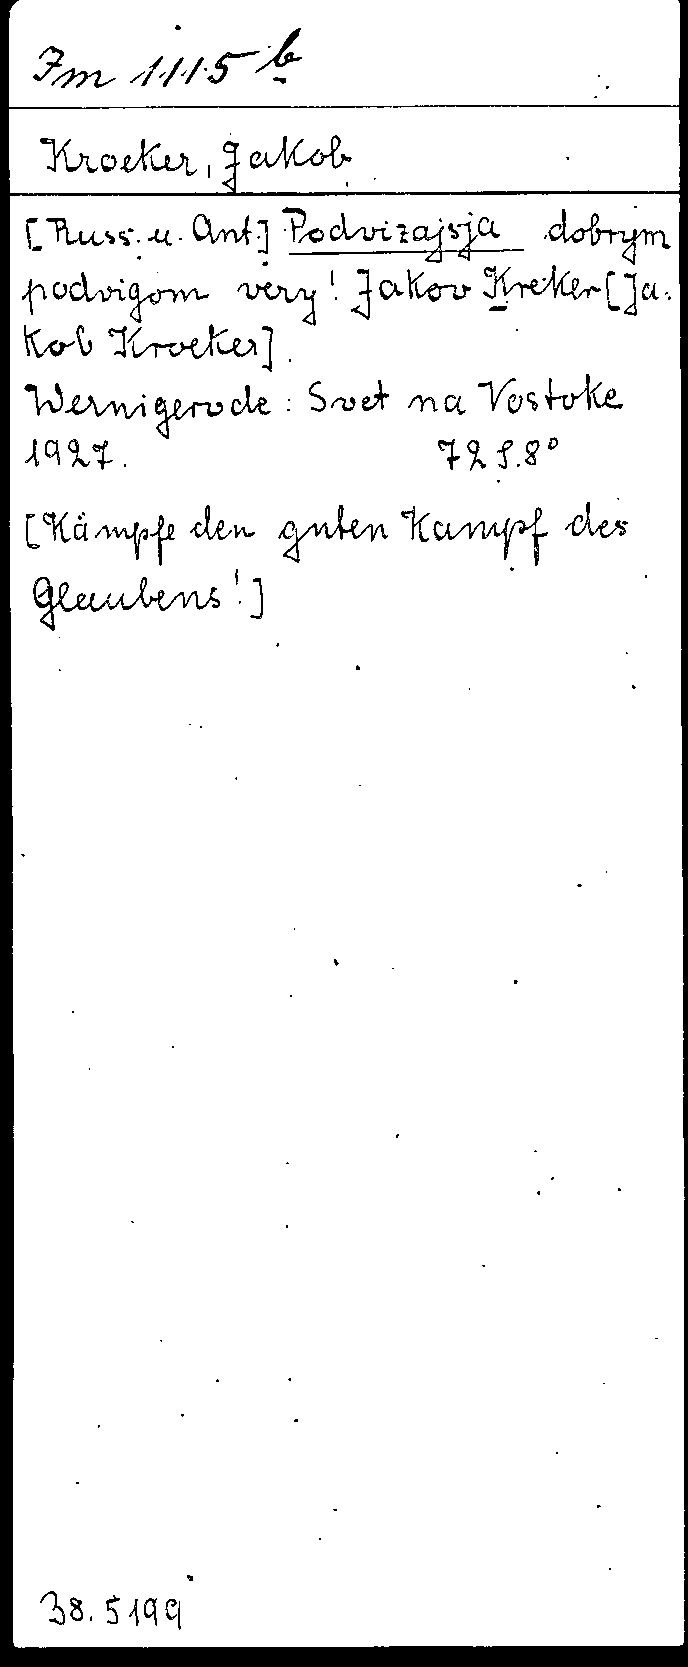 Im 1115 b
Kroeker, Jakob
[Russ. u. Ant.] Podvizajsja dobrym
podvigom very! Jakov Kreker [Ja-
kob Kroeker].
Wernigerode: Svet na Vostoke
1927. 72 S. 8°
[Kämpfe den guten Kampf des
Glaubens!]
38.5199